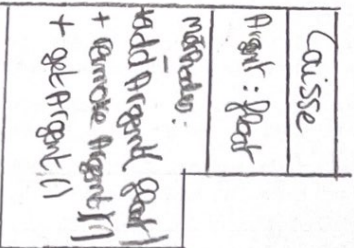 Caisse
Argent : float
méthodes :
+ add Argent( float )
+ remove Argent()
+ getArgent()